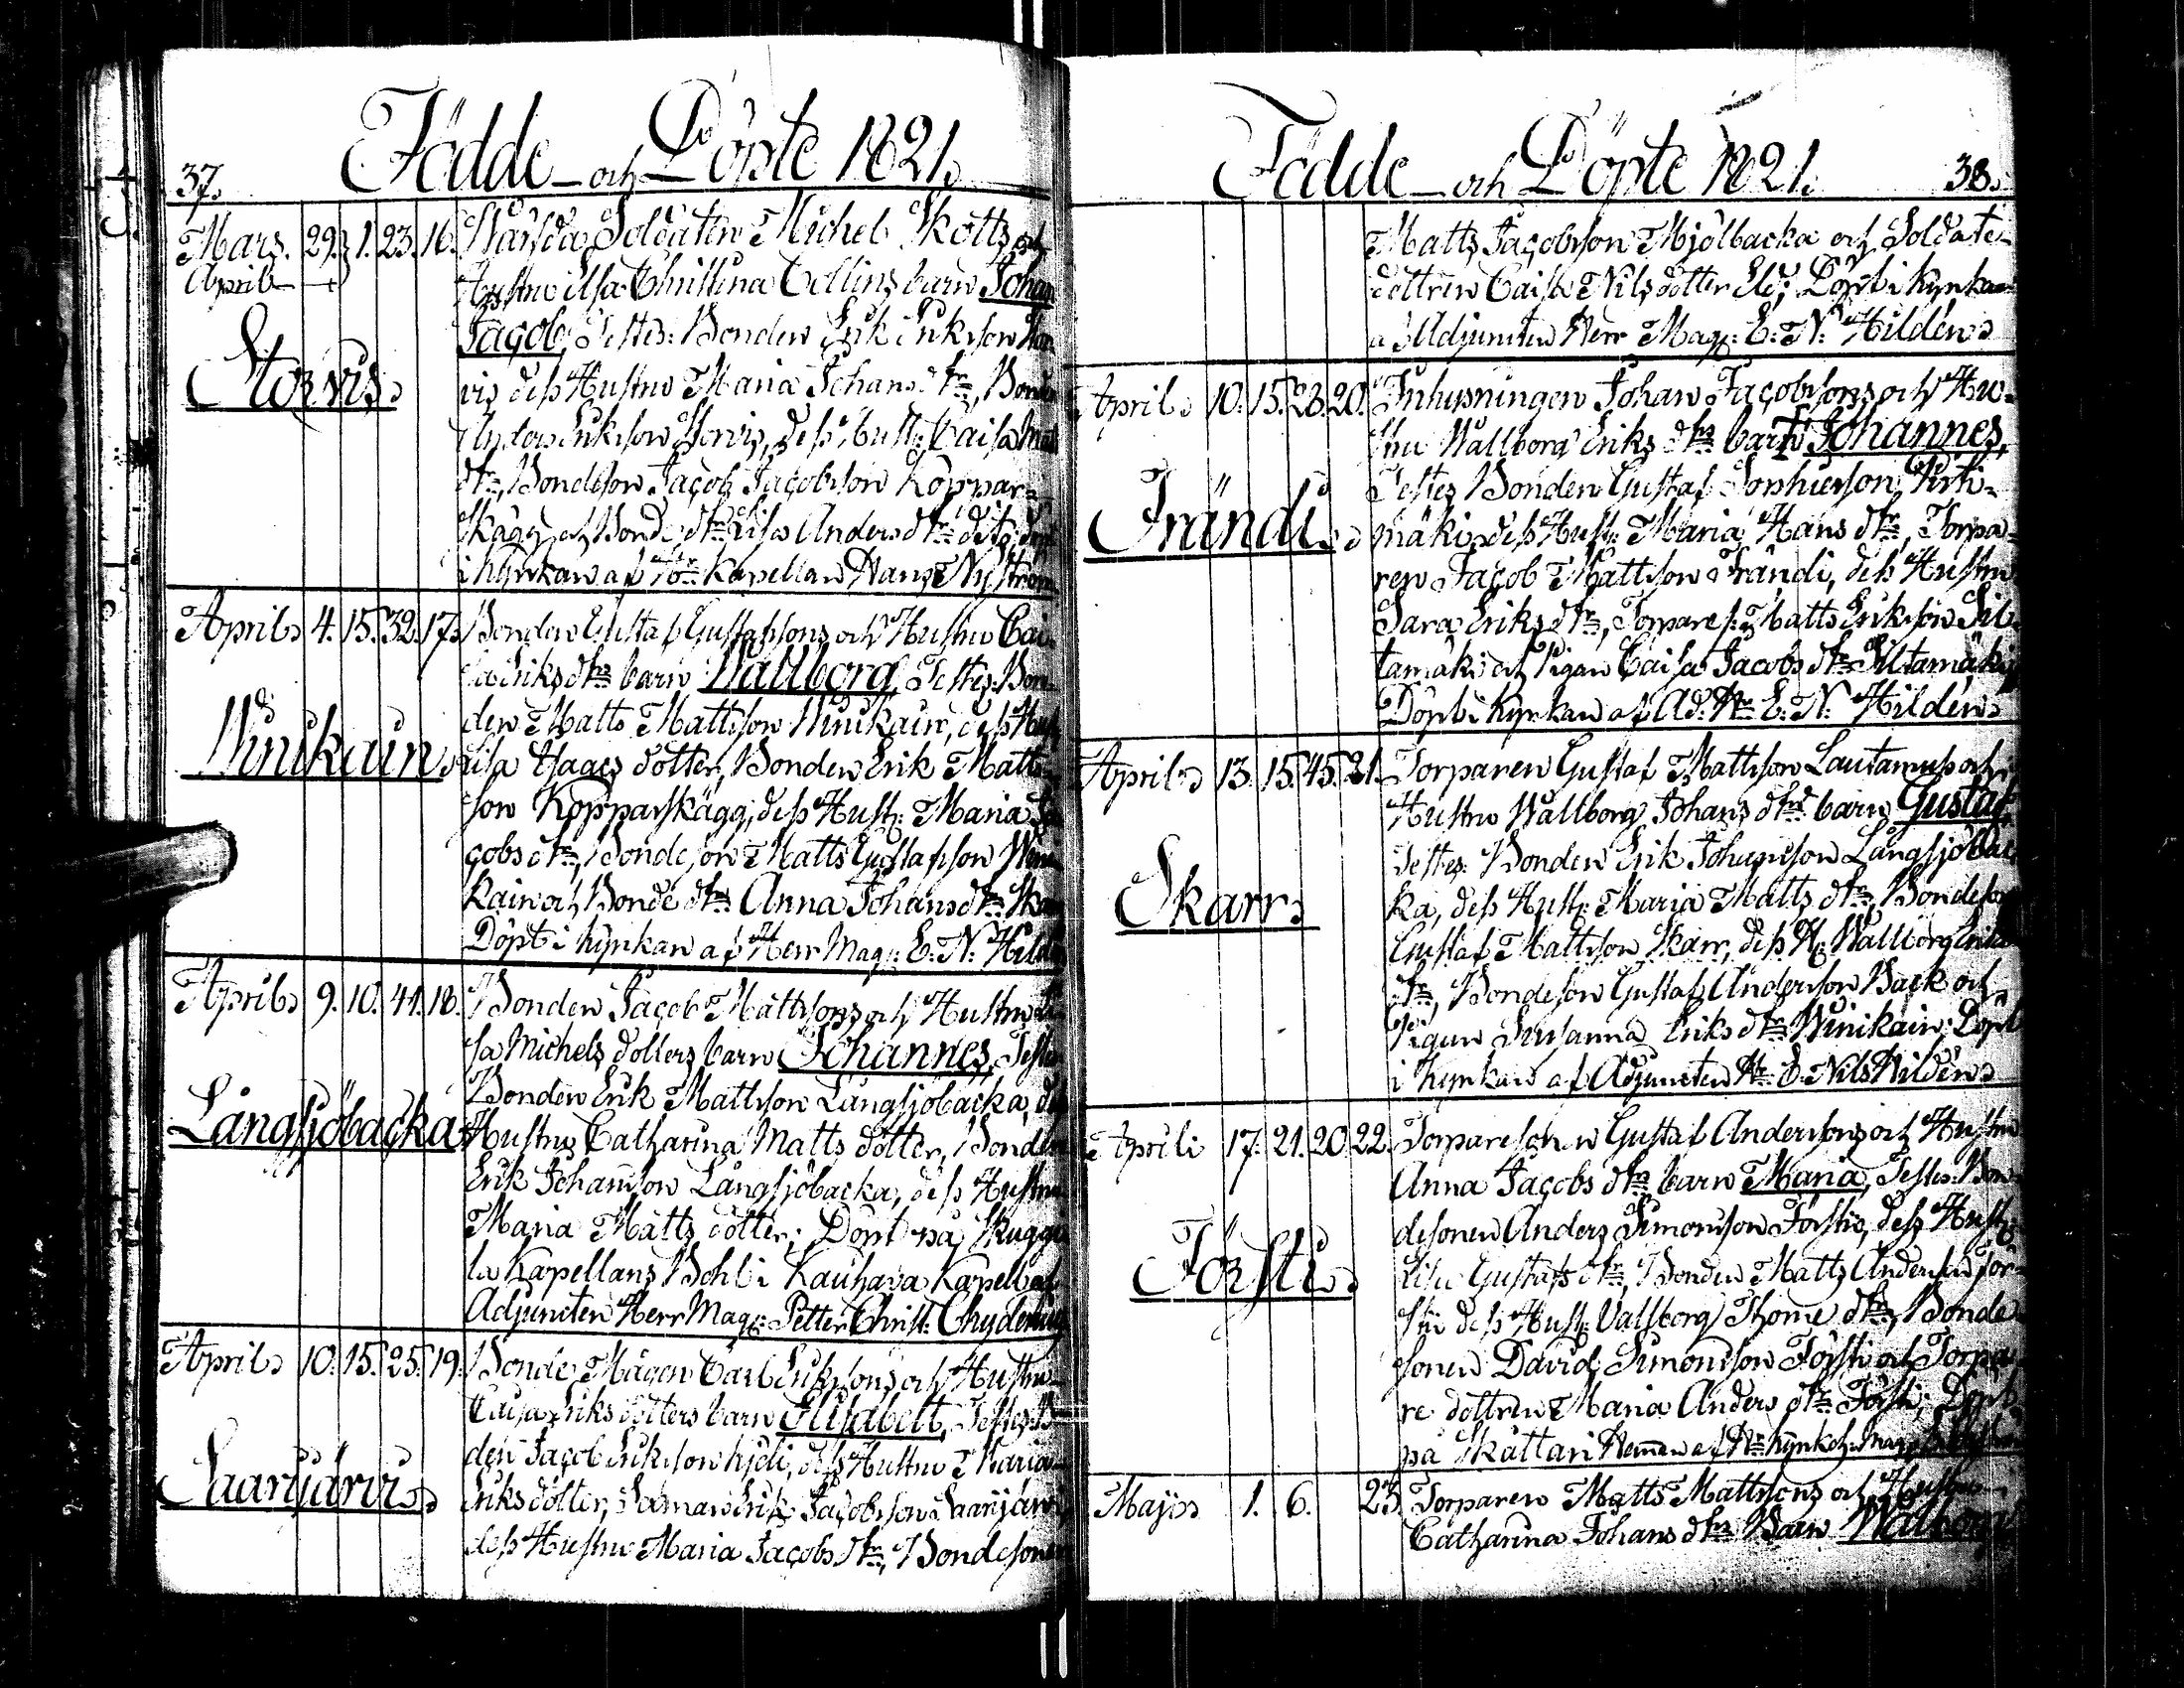 37.
Födde och Döpte 1821.
Mars. 29. 1. 23. 16. Soldaten Michel Skotts och
April Hustru Christina Collins barn Johan
Jacob, Testes: Bonden Erik Erikson
Storvis
vis dess Hustru Maria Johans dtr, Bonden
Anders Erikson Storvis, dess Hustr: Caisa
dtr, Bondeson Jacob Jacobson Koppar=
skägg och Bonde dtr Lisa Anders dtr
i kyrkan af Hr Kapellan Hans Nyström
April 4. 15. 32. 17. Bonden Gustaf Gustafsons och Hustru Cai
sa Eriks dtrs barn Wallborg, Testes: Bon
den Matts Mattson Winikain, dess Hustr
Winikain
Lisa Isaacs dotter, Bonden Erik Matts
son Kopparskägg, dess Hustr: Maria Ja
cobs dtr, Bondeson Matts Gustafson Wini
kain och Bonde dtr Anna Johans dtr
Döpt i kyrkan af Herr Mag: E. N. Hildén
April 9. 10. 41. 18. Bonden Jacob Mattsons och Hustru Li
sa Michels dotters barn Johannes, Testes
Bonden Erik Mattson Långsjöbacka, dess
Långsjöbacka
Hustru Catharina Matts dotter, Bonden
Erik Johanson Långsjöbacka, dess Hustru
Maria Matts dotter; Döpt på
la Kapellans Bohl i Kauhava Kapell af
Adjuncten Herr Mag: Petter Christ: Chydenius
April 10. 15. 25. 19. Bonde Mågen Carl Eriksons och Hustru
Caisa Eriks dotters barn Elisabett, Testes: Bon
den Jacob Erikson, dess Hustru Maria
Saarijärvi
Eriks dotter, Erik Jacobson Saarijärvi
dess Hustru Maria Jacobs dtr, Bondesonen
Födde och Döpte 1821. 38.
Matts Jacobson Mjölbacka och Soldate=
dottren Caisa Nils dotter; Döpt i kyrkan
af Adjuncten Herr Mag: E. N. Hildén
April 10. 15. 28. 20. Inhysningen Johan Jacobsons och Hu=
stru Wallborg Eriks dtrs barn Johannes,
Testes Bonden Gustaf Pirti=
Frändi
mäki, dess Hustr: Maria Hans dtr, Torpa=
ren Jacob Mattson Frändi, dess Hustru
Sara Eriks dtr, Torpares: Matts Erikson Sil
tamäki och Pigan Caisa Jacobs dtr Siltamäki
Döpt i kyrkan af Ad: Hr E. N. Hildén
April 13. 15. 45. 21. Torparen Gustaf Mattson Lautamus och
Hustru Wallborg Johans dtrs barn Gustaf,
Testes: Bonden Erik Johanson Långsjöbac
Skarr
ka, dess Hustr: Maria Matts dtr, Bondeson
Gustaf Mattson Skarr, dess H: Wallborg Eriks
dtr, Bondeson Gustaf Anderson Back och
Pigan Susanna Eriks dtr Winikain; Döpt
i kyrkan af Adjuncten Hr E. Nils Hildén
April 17. 21. 20. 22. Torparesonen Gustaf Andersons och Hustru
Anna Jacobs dtrs barn Maria, Testes: Bon
desonen Anders Simonson Försti, dess Hustr
Försti
Lisa Gustafs dtr, Bonden Matts Anderson För=
sti dess Hustr: Valborg Thome dtr, Bonde
sonen David Simonson Försti och Torpa
re dottren Maria Anders dtr Försti; Döpt
på Skattari Heman af Hr
Majo 1. 6. 23. Torparen Matts Mattsons och Hustru
Catharina Johans dtrs Barn Walborg